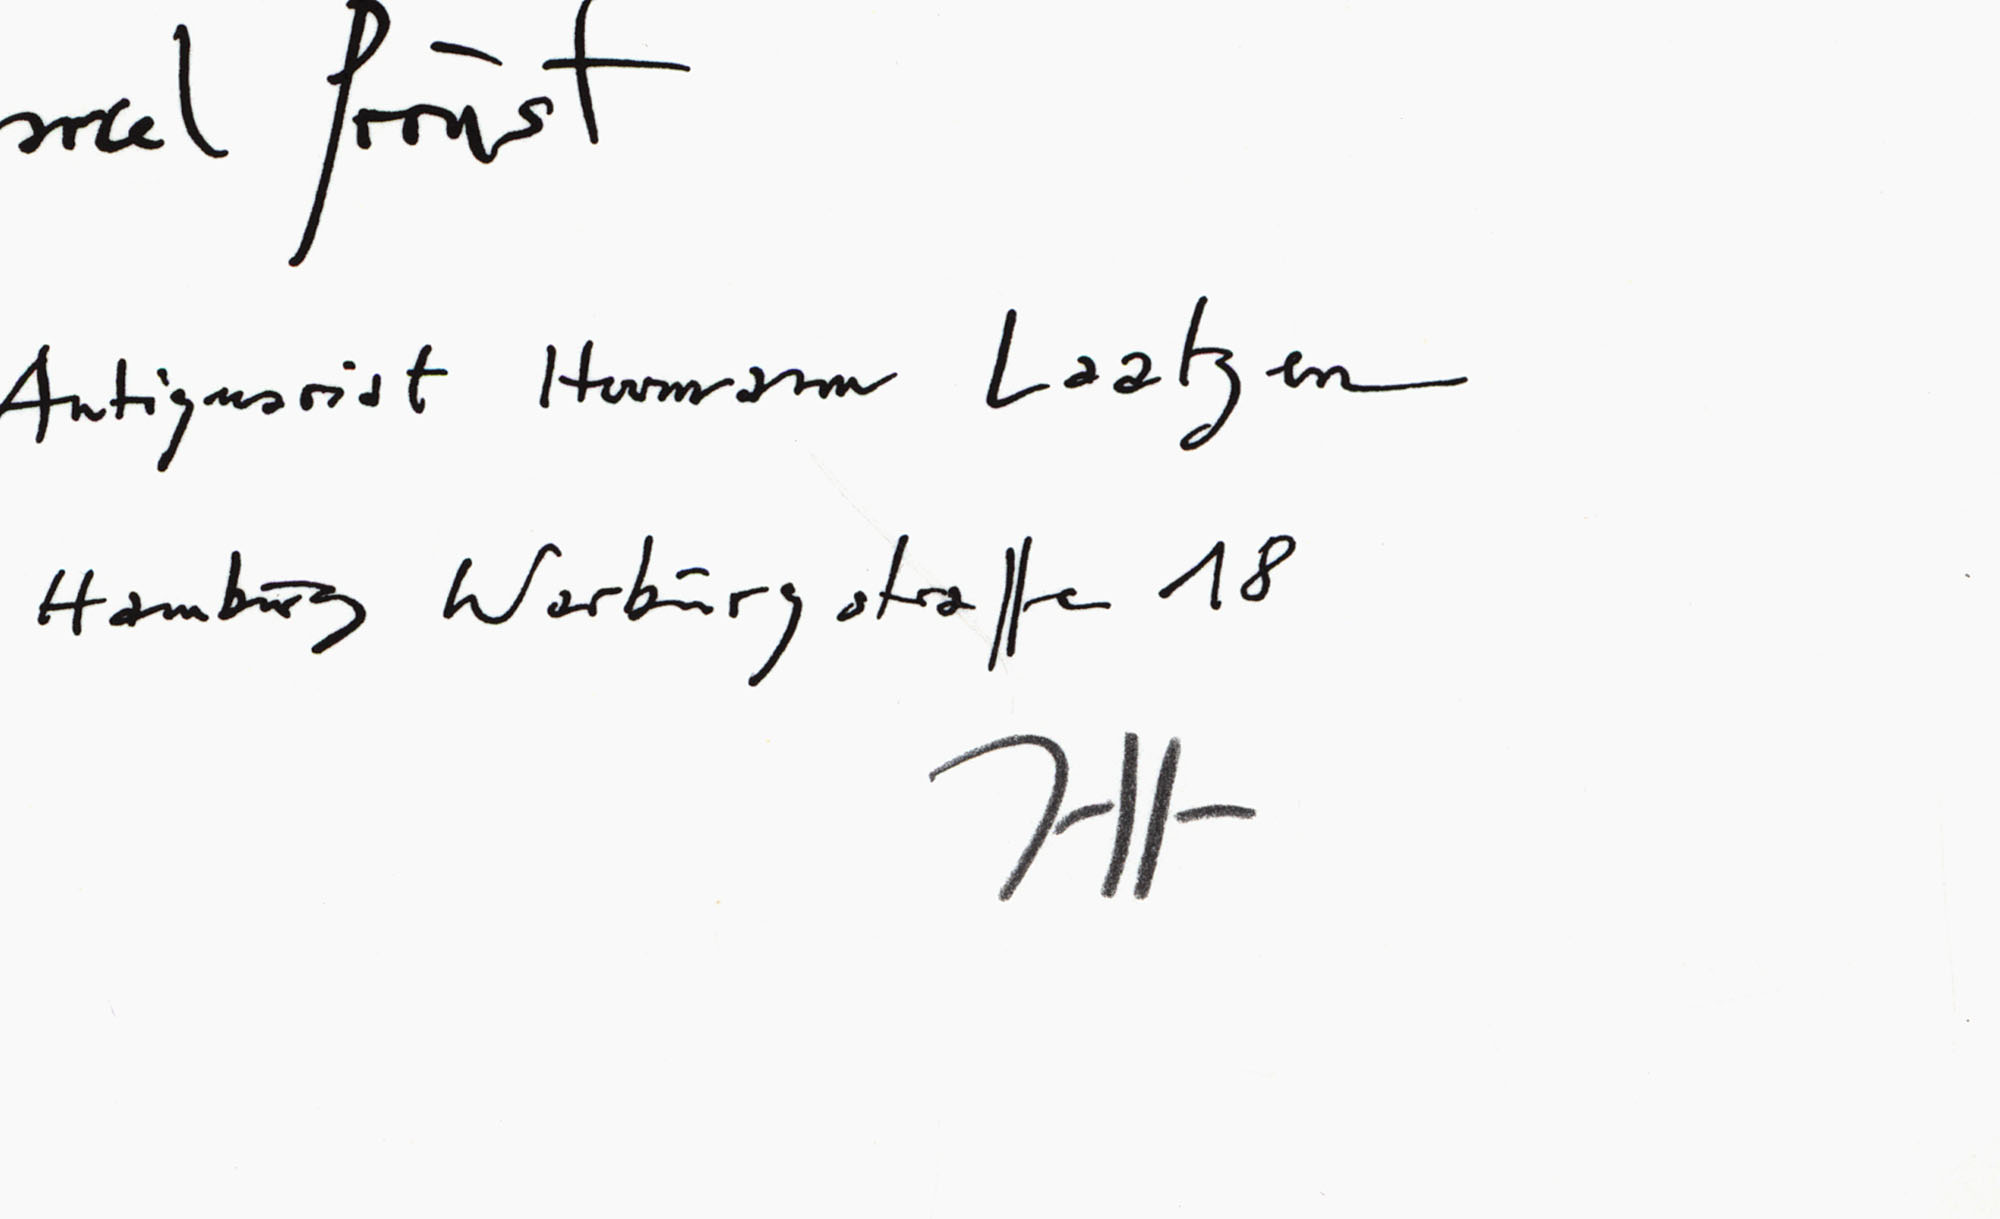 arcel Proust
Antiquariat Hermann Laatzen
Hamburg Warburgstrasse 18